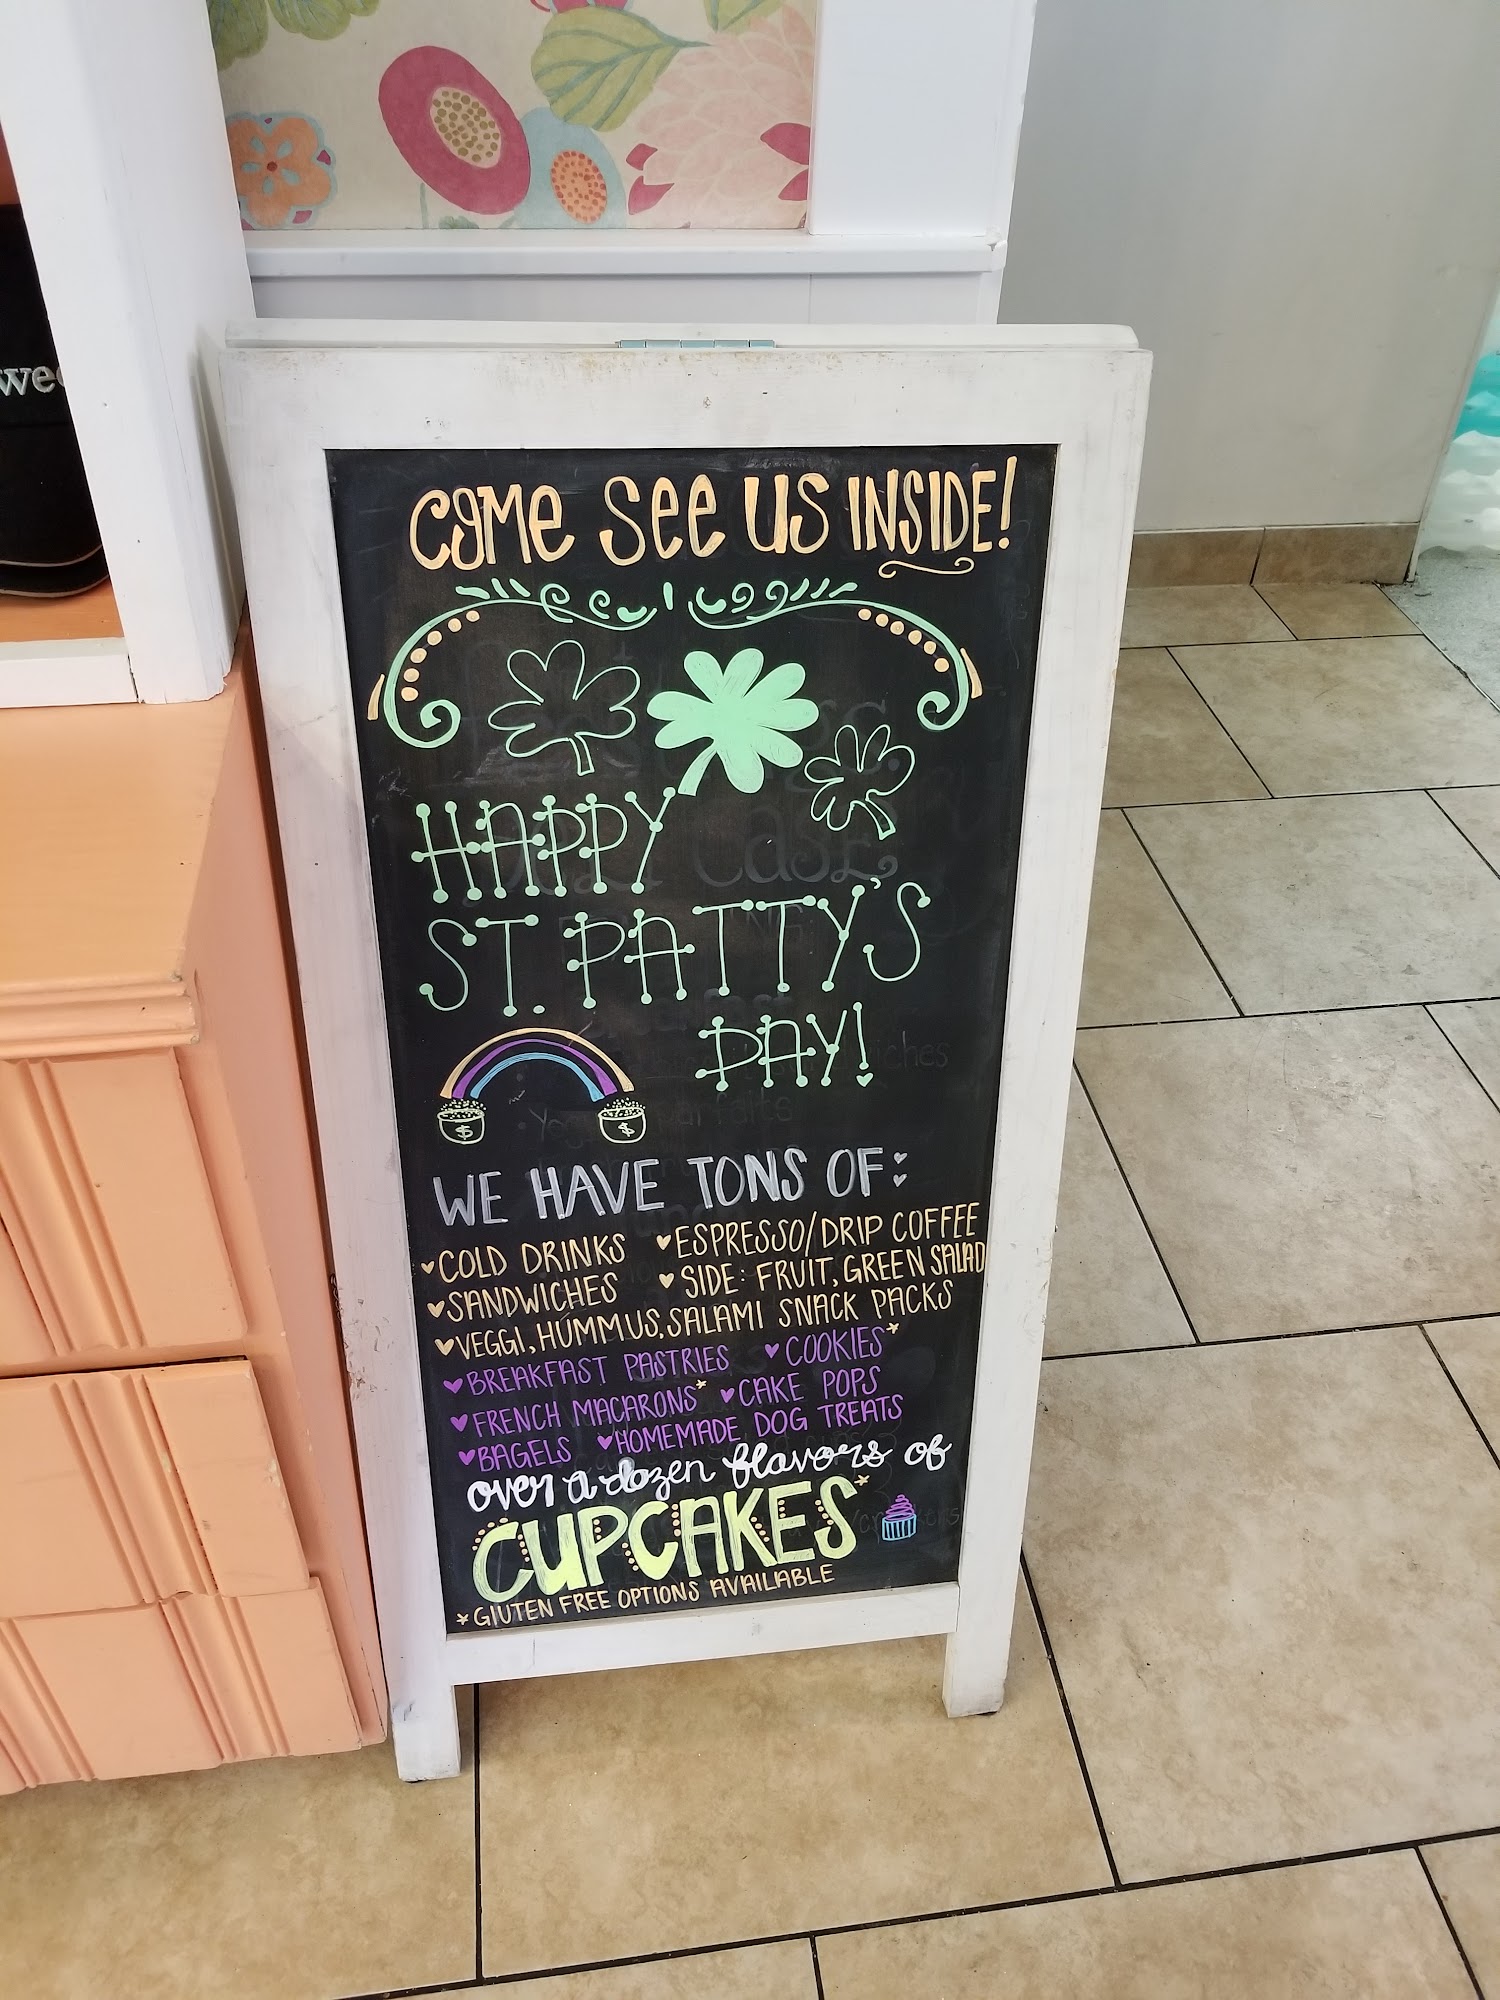 COME SEE US INSIDE!
HAPPY
ST. PATTY'S
DAY!
$ $
WE HAVE TONS OF:
♥COLD DRINKS ♥ESPRESSO/DRIP COFFEE
♥SANDWICHES ♥SIDE: FRUIT, GREEN SALAD
♥VEGGI, HUMMUS, SALAMI SNACK PACKS
♥BREAKFAST PASTRIES ♥COOKIES*
♥FRENCH MACARONS* ♥CAKE POPS
♥BAGELS ♥HOMEMADE DOG TREATS
over a dozen flavors of
CUPCAKES*
*GLUTEN FREE OPTIONS AVAILABLE